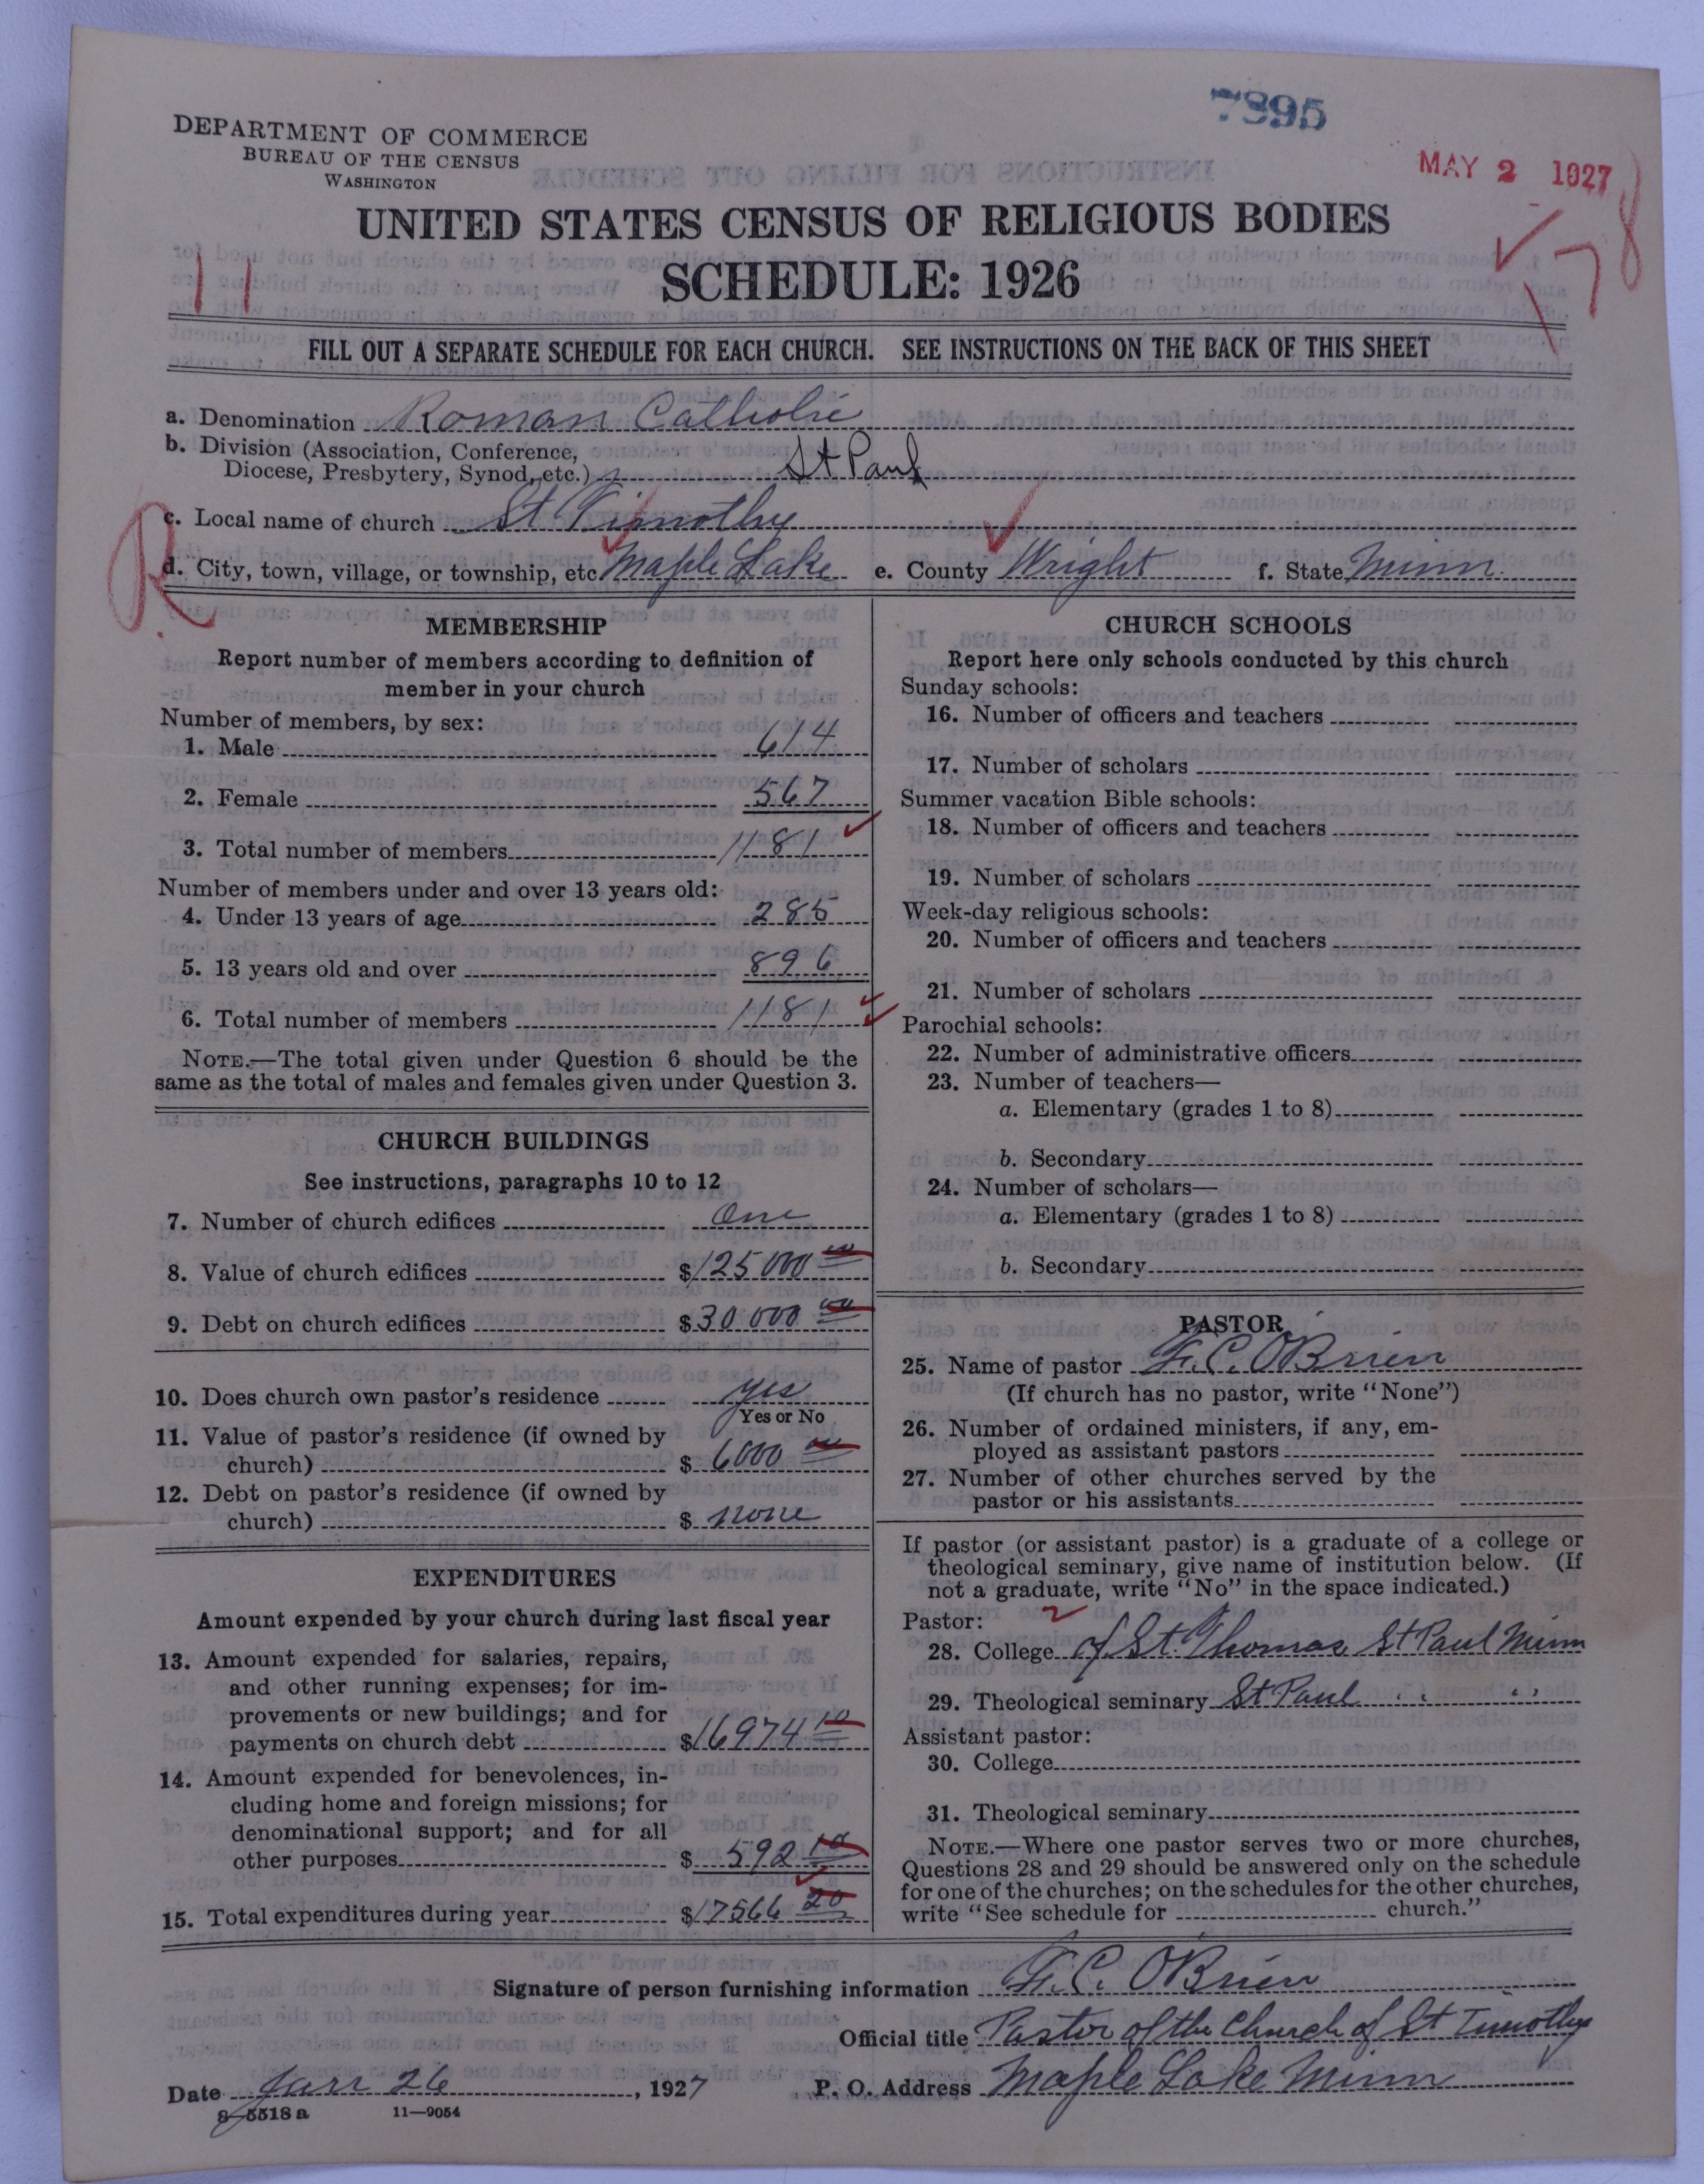 7895
DEPARTMENT OF COMMERCE
BUREAU OF THE CENSUS
WASHINGTON
MAY 2 1927
UNITED STATES CENSUS OF RELIGIOUS BODIES
SCHEDULE: 1926
11
78
FILL OUT A SEPARATE SCHEDULE FOR EACH CHURCH. SEE INSTRUCTIONS ON THE BACK OF THIS SHEET
a. Denomination Roman Catholic
b. Division (Association, Conference,
Diocese, Presbytery, Synod, etc.) St Paul
R
c. Local name of church St Timothy
d. City, town, village, or township, etc. Maple Lake e. County Wright f. State Minn.
MEMBERSHIP
Report number of members according to definition of
member in your church
Number of members, by sex:
1. Male 614
2. Female 567
3. Total number of members 1181
Number of members under and over 13 years old:
4. Under 13 years of age 285
5. 13 years old and over 896
6. Total number of members 1181
NOTE.—The total given under Question 6 should be the
same as the total of males and females given under Question 3.
CHURCH BUILDINGS
See instructions, paragraphs 10 to 12
7. Number of church edifices One
8. Value of church edifices $125000 00
9. Debt on church edifices $30000 00
10. Does church own pastor's residence yes
Yes or No
11. Value of pastor's residence (if owned by
church) $ 6000 00
12. Debt on pastor's residence (if owned by
church) $ none
EXPENDITURES
Amount expended by your church during last fiscal year
13. Amount expended for salaries, repairs,
and other running expenses; for im-
provements or new buildings; and for
payments on church debt $16974 10
14. Amount expended for benevolences, in-
cluding home and foreign missions; for
denominational support; and for all
other purposes $ 592 10
15. Total expenditures during year $17566 20
CHURCH SCHOOLS
Report here only schools conducted by this church
Sunday schools:
16. Number of officers and teachers
17. Number of scholars
Summer vacation Bible schools:
18. Number of officers and teachers
19. Number of scholars
Week-day religious schools:
20. Number of officers and teachers
21. Number of scholars
Parochial schools:
22. Number of administrative officers
23. Number of teachers—
a. Elementary (grades 1 to 8)
b. Secondary
24. Number of scholars—
a. Elementary (grades 1 to 8)
b. Secondary
PASTOR
25. Name of pastor F. C. O'Brien
(If church has no pastor, write "None")
26. Number of ordained ministers, if any, em-
ployed as assistant pastors
27. Number of other churches served by the
pastor or his assistants
If pastor (or assistant pastor) is a graduate of a college or
theological seminary, give name of institution below. (If
not a graduate, write "No" in the space indicated.)
Pastor:
28. College of St. Thomas St Paul Minn
29. Theological seminary St Paul " "
Assistant pastor:
30. College
31. Theological seminary
NOTE.—Where one pastor serves two or more churches,
Questions 28 and 29 should be answered only on the schedule
for one of the churches; on the schedules for the other churches,
write "See schedule for church."
Signature of person furnishing information F. C. O'Brien
Official title Pastor of the Church of St Timothy
Date Jan 26, 1927 P. O. Address Maple Lake Minn
8-5518 a 11—9054